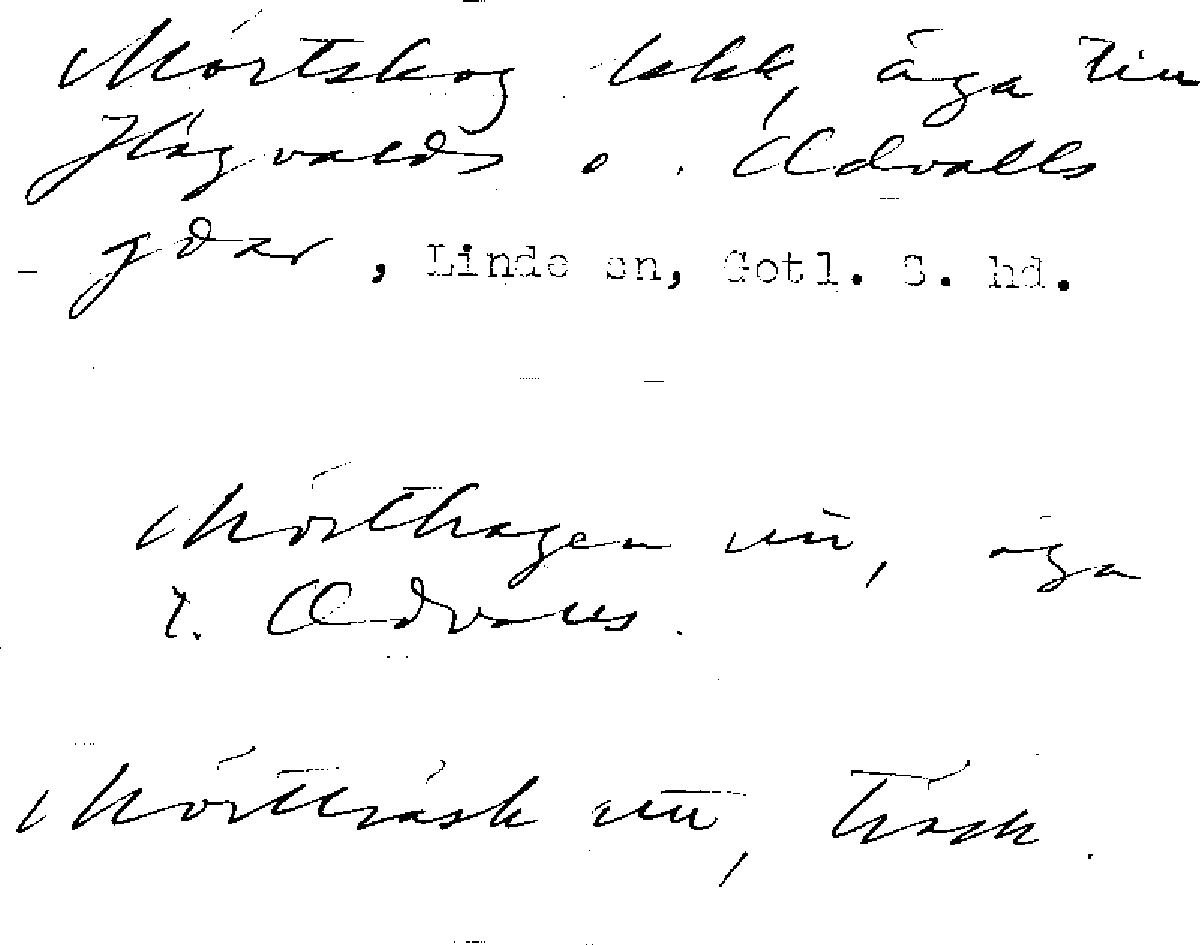 Mörtskog lskk, äga till
Hägvalds o. Odvalls
gdar, Linde sn, Gotl. S. hd.
Mörthagen utr, äga
t. Odvalls.
Mörtträsk utr, träsk.